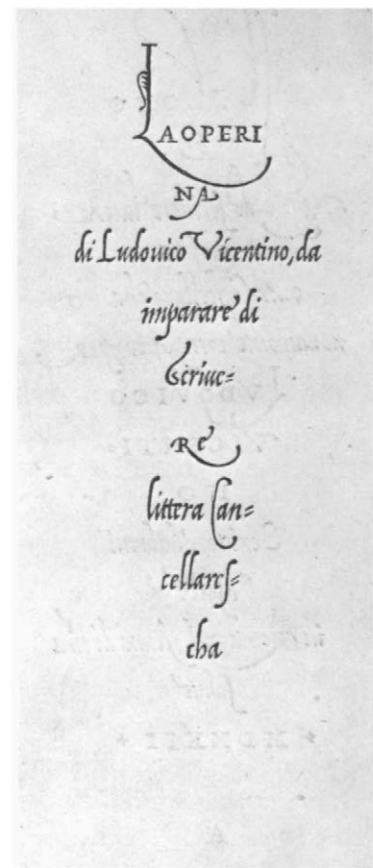 LAOPERI
NA
di Ludouico Vicentino, da
imparare di
scriue=
Re
littera Can=
cellares=
cha